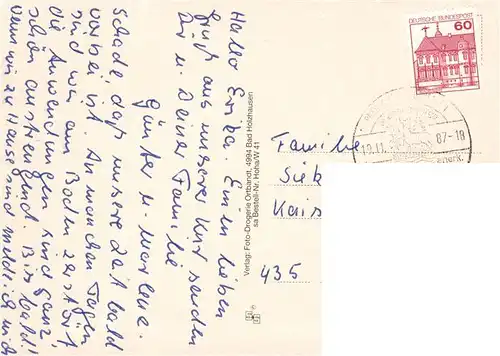 Hallo Erika. Einen lieben
Gruß aus unserer Kur senden
Dir u. Deiner Familie
Günter u. Marlene.
Schade daß unsere Zeit bald
vorbei ist. An manchen Tagen
sind wir am Boden zerstört
die Anwendungen sind ganz
schön anstrengend. Bis bald!
wenn wir zu Hause sind melde ich mich
Verlag: Foto-Drogerie Ortbandt, 4994 Bad Holzhausen
sa Bestell-Nr. Hoha/W 41
DEUTSCHE BUNDESPOST
60
87-18
Familie
Siek
Kais
435